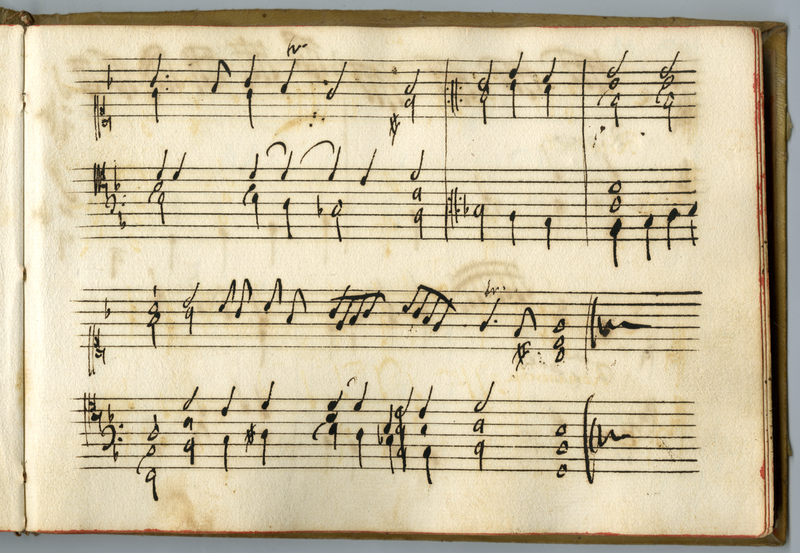 tr
tr.